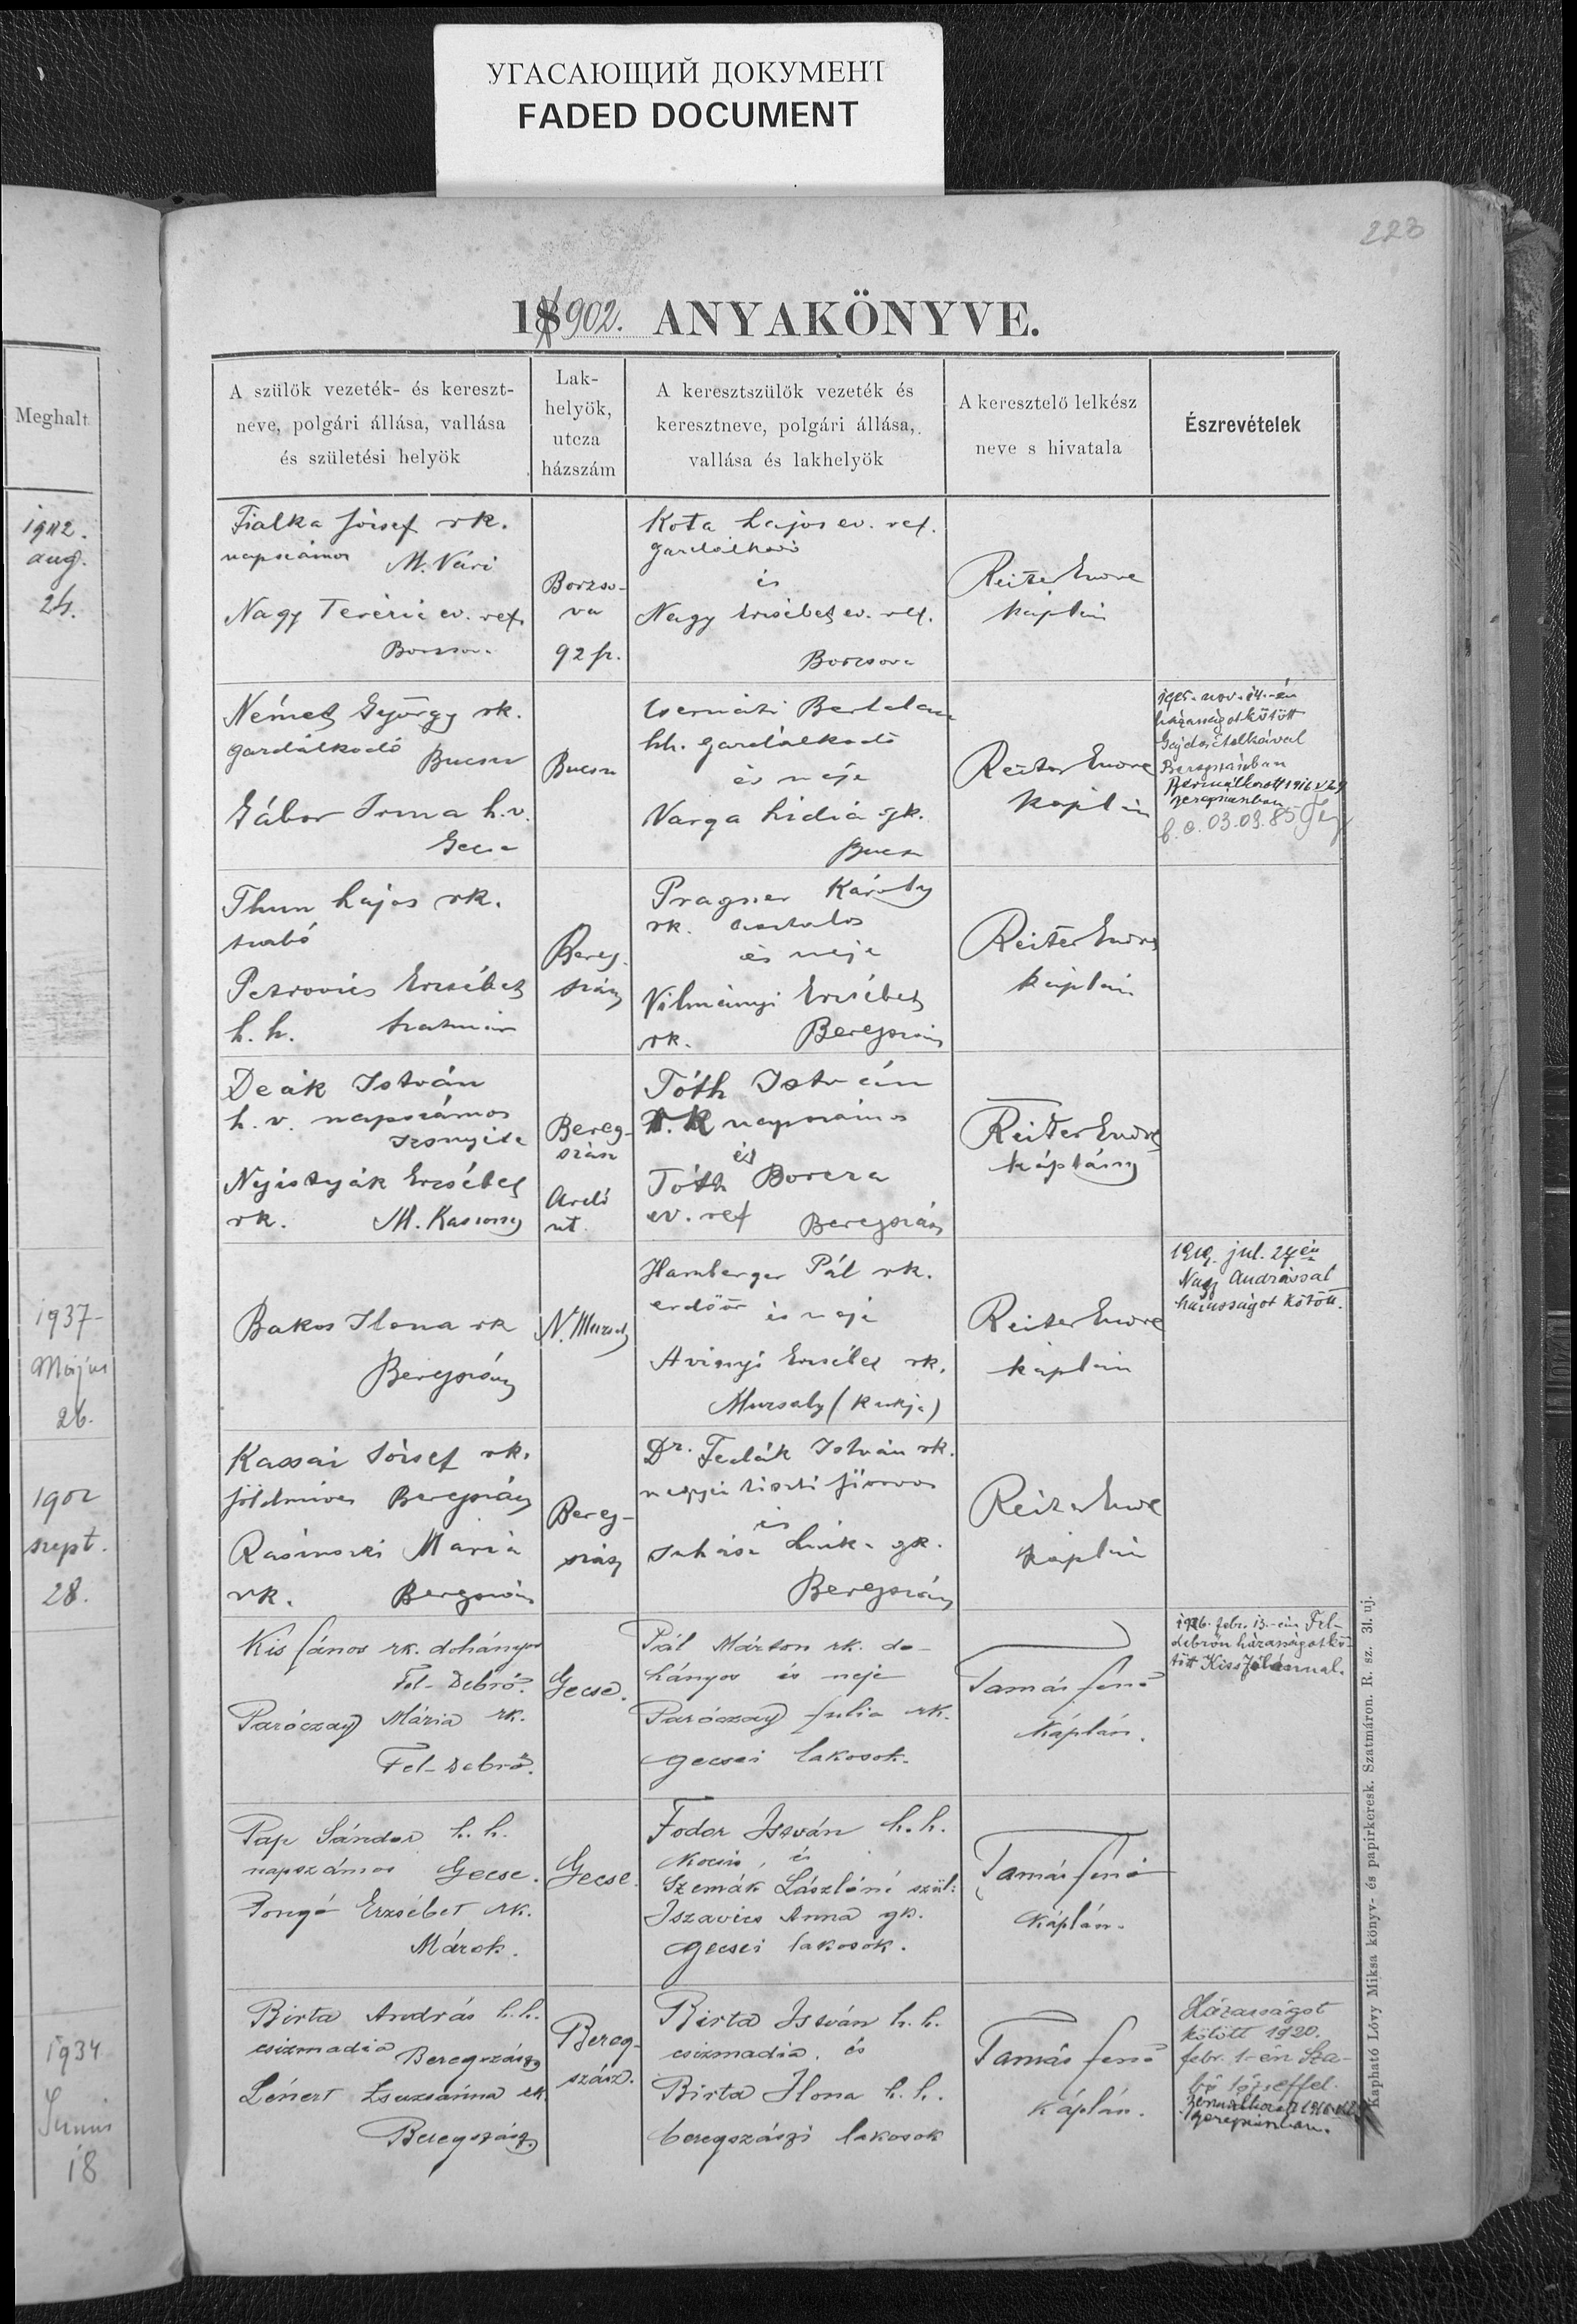 УГАСАЮЩИЙ ДОКУМЕНТ
FADED DOCUMENT
223
1902. ANYAKÖNYVE.
Meghalt
A szülök vezeték- és kereszt-
neve, polgári állása, vallása
és születési helyök
Lak-
helyök,
utcza
házszám
A keresztszülök vezeték és
keresztneve, polgári állása,
vallása és lakhelyök
A keresztelő lelkész
neve s hivatala
Észrevételek
1902.
aug.
24.
Fialka József rk.
napszámos M. Vári
Nagy Terézia ev. ref.
Borzsova
Borzso-
va
92 sz.
Kota Lajos ev. ref.
gazdálkodó
és
Nagy Erzsébet ev. ref.
Borzsova
Reiter Endre
káplán
Német György rk.
gazdálkodó Bucsu
Gábor Irma h.v.
Gecse
Bucsu
Csernáti Bertalan
hh. gazdálkodó
és neje
Varga Lidia gk.
Bucsu
Reiter Endre
káplán
1925. nov. 14.-én
házasságot kötött
Gajdos Etelkával
Beregszászban
Bérmálkozott 1916
Beregszászban
03.03.85
Thun Lajos rk.
szabó
Petrovics Erzsébet
h.h. Szatmár
Bereg-
szász
Pragner Károly
rk. asztalos
és neje
Vilmányi Erzsébet
rk. Beregszász
Reiter Endre
káplán
Deák István
h.v. napszámos
Nyistyák Erzsébet
rk. M. Kaszony
Bereg-
szász
Ardó
ut
Tóth István
r.k napszámos
és
Tóth Borcza
ev. ref Beregszász
Reiter Endre
káplány
1937-
Május
26.
Bakos Ilona rk
Beregszász
N. Muzsaly
Hamberger Pál rk.
erdőőr és neje
Avinyi Erzsébet rk.
Muzsaly (Kukja)
Reiter Endre
káplán
1919. jul. 27én
Nagy Andrással
házasságot kötött.
1902
szept.
28.
Kassai József rk.
földmives Beregszász
Rasinszki Mária
rk. Beregszász
Bereg-
szász
Dr. Fedák István rk.
megyei tiszti főorvos
és
Juhász Linka gk.
Beregszász
Reiter Endre
káplán
Kis János rk. dohányos
Fel-Debrő.
Paróczay Mária rk.
Fel-Debrő.
Gecse.
Pál Márton rk. do-
hányos és neje
Paróczay Julia rk.
gecsei lakosok.
Tamás Jenő
káplán.
1926. febr. 13.-án Fel-
debrőn házasságot kö-
tött Kiss Jolánnal.
Pap Sándor h.h.
napszámos Gecse.
Pongó Erzsébet rk.
Márok.
Gecse.
Fodor István h.h.
kocsis, és
Szemák Lászlóné szül:
Iszavics Anna gk.
gecsei lakosok.
Tamás Jenő
káplán.
1934
Junius
18
Birta András h.h.
csizmadia Beregszász
Lénert Zsuzsánna rk
Beregszász
Bereg-
szász.
Birta István h.h.
csizmadia. és
Birta Ilona h.h.
beregszászi lakosok
Tamás Jenő
káplán.
Házasságot
kötött 1920.
febr. 1-én Sza-
bó Józseffel.
Bérmálkozott 1916
Beregszászban.
Kapható Lővy Miksa könyv- és papirkeresk. Szatmáron. R. sz. 31. uj.